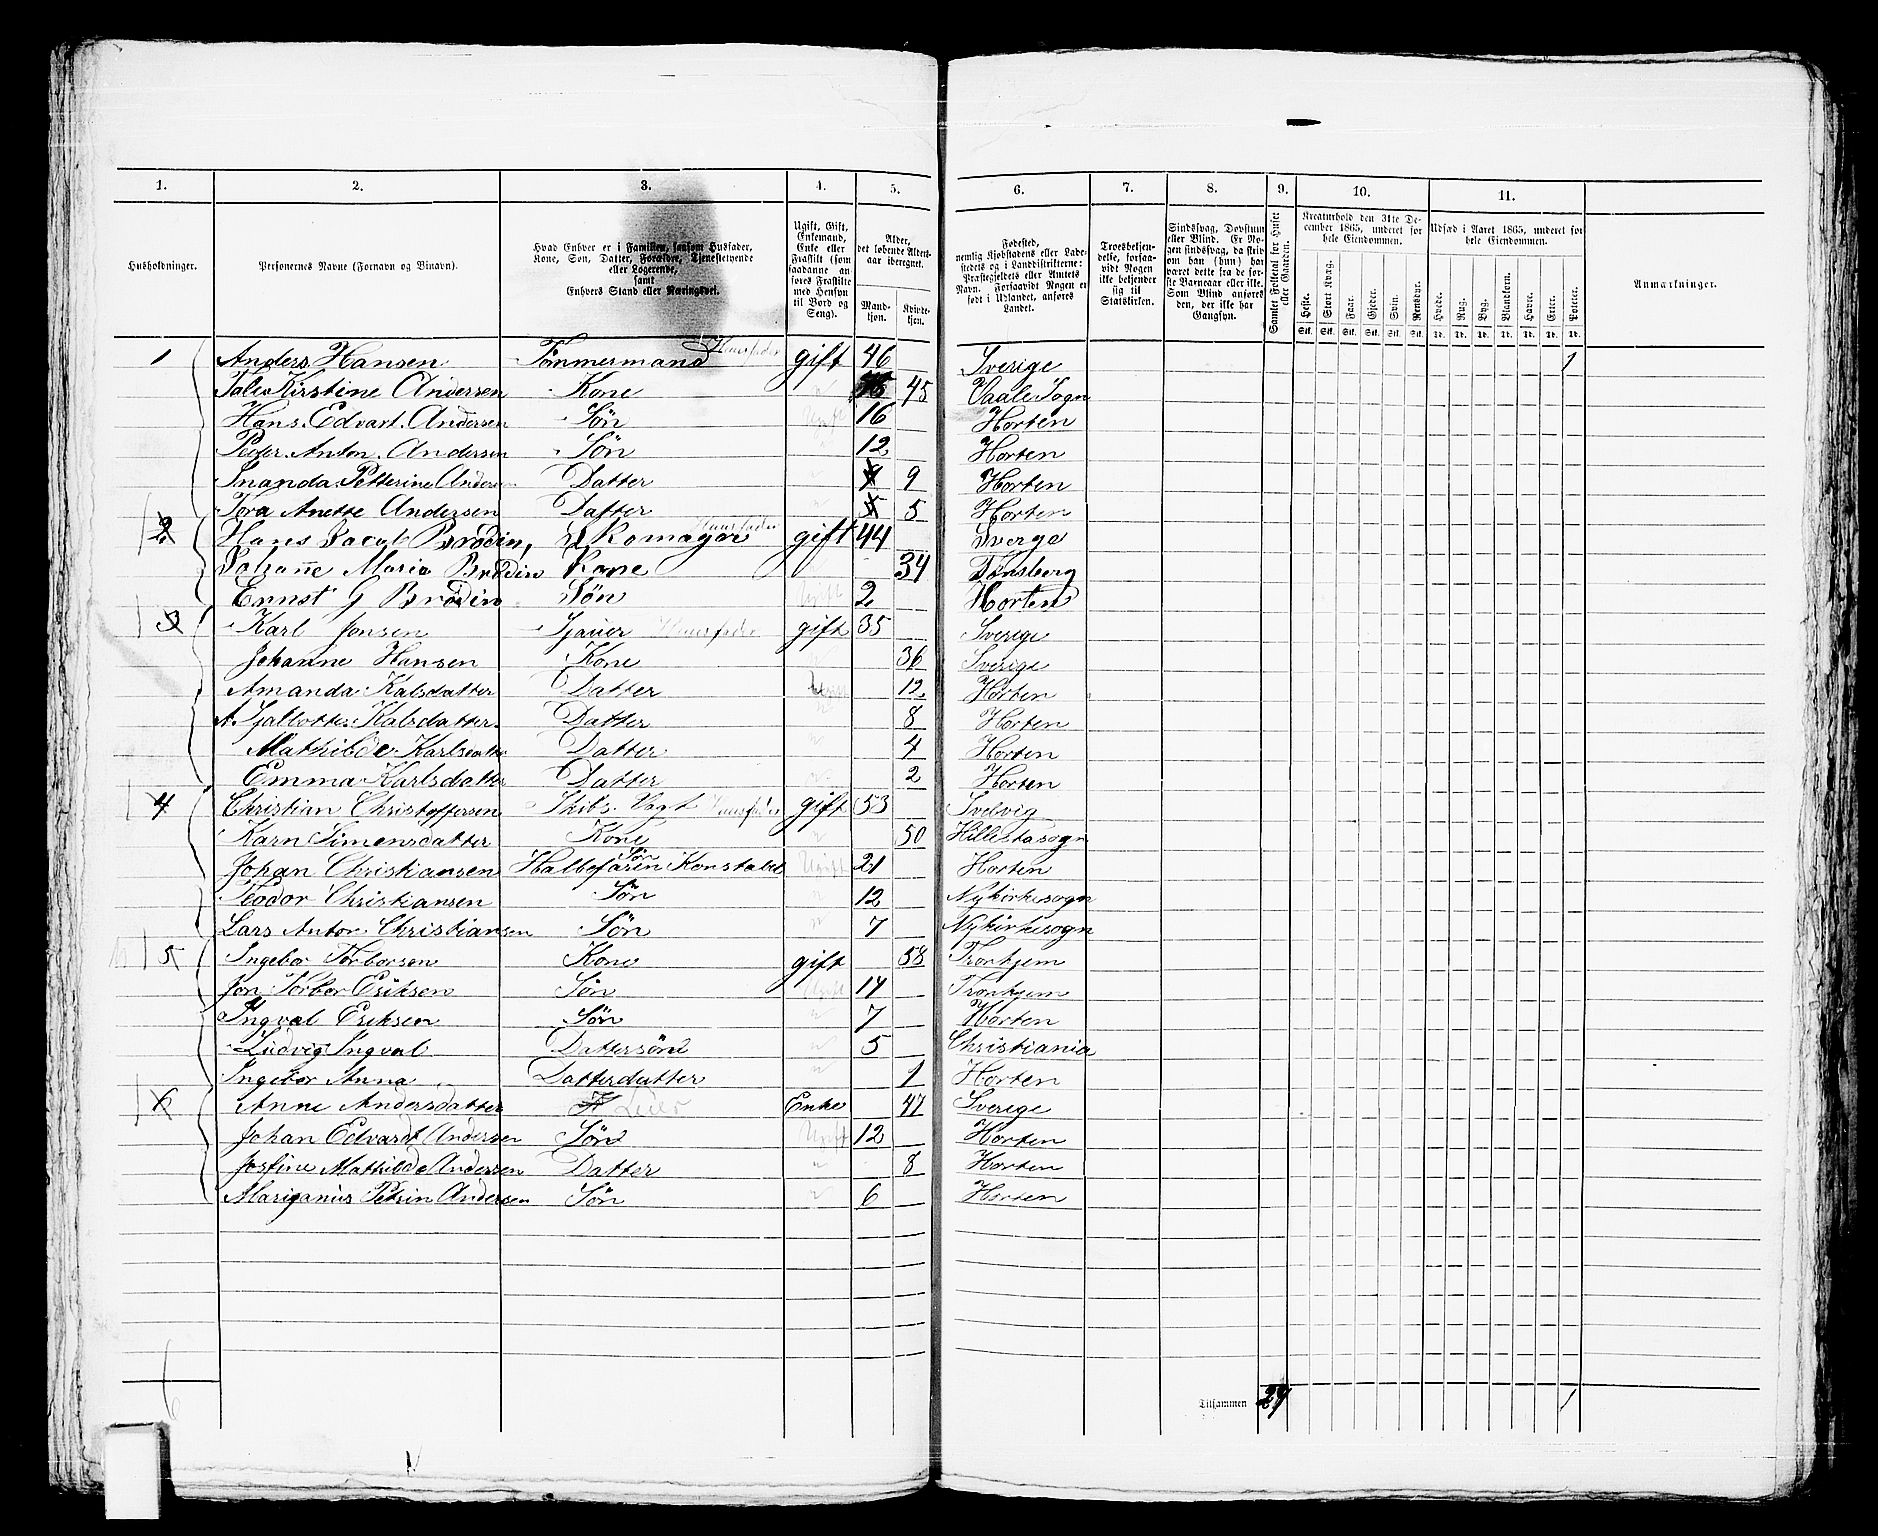 1. 2. 3. 4. 5. 6. 7. 8. 9. 10. 11.
Husholdninger.
Personernes Navne (Fornavn og Binavn).
Hvad Enhver er i Familien, saasom Husfader,
Kone, Søn, Datter, Forældre, Tjenestetyende
eller Logerende,
samt
Enhvers Stand eller Næringsvei.
Ugift, Gift,
Enkemand,
Enke eller
Fraskilt (som
saadanne an-
føres Fraskilte
med Hensyn
til Bord og
Seng).
Alder,
det løbende Alders-
aar iberegnet.
Mand-
kjøn.
Kvinde-
kjøn.
Fødested,
nemlig Kjøbstadens eller Lade-
stedets og i Landdistrikterne:
Præstegjeldets eller Amtets
Navn. Forsaavidt Nogen er
født i Udlandet, anføres
Landet.
Troesbekjen-
delse, forsaa-
vidt Nogen
ikke bekjender
sig til
Statskirken.
Sindssvag, Døvstum
eller Blind. Er No-
gen sindssvag, da skriv
om han (hun) har
været dette fra de før-
ste Barneaar eller ikke.
Som Blind anføres
den, der ikke har
Gangsyn.
Samlet Folketal for Huset
eller Gaarden.
Kreaturhold den 31te De-
cember 1865, underet for
hele Eiendommen.
Heste. Stort Kvæg. Faar. Gjeder. Svin. Rensdyr.
Stk. Stk. Stk. Stk. Stk. Stk.
Udsæd i Aaret 1865, underet for
hele Eiendommen.
Hvede. Rug. Byg. Blandkorn. Havre. Erter. Poteter.
Anmærkninger.
1 Anders Hansen Tømmermand Huusfader gift 46 Sverige 1
Kirstine Andersen Kone 45 Vaale Sogn
Hans Edvart Andersen Søn Ugift 16 Horten
Peder Anton Andersen Søn 12 Horten
Petterine Andersen Datter 9 Horten
Tora Anette Andersen Datter 5 Horten
2 Hans Jacob Brødin, Skomager Huusfader gift 44 Sverge
Johanne Maria Brødin Kone 34 Tønsberg
Ernst G Brødin Søn Ugift 2 Horten
3 Karl Jonsen Huusfader gift 35 Sverige
Johanne Hansen Kone 36 Sverige
Amanda Kalsdatter Datter 12 Horten
A. Sjallotte Kalsdatter Datter 8 Horten
Mathilde Karlsdatter Datter 4 Horten
Emma Karlsdatter Datter 2 Horten
4 Christian Christoffersen Skibs Vagt Huusfader gift 53 Svelvig
Karn Simensdatter Kone 50 Hillestasogn
Johan Christiansen Søn Konstabel Ugift 21 Horten
Teodor Christiansen Søn 12 Nykirkesogn
Lars Anton Christiansen Søn 7 Nykirkesogn
5 Ingebor Torborsen Kone gift 58 Tronhjem
Jon Torbor Eriksen Søn Ugift 14 Tronhjem
Ingval Eriksen Søn 7 Horten
Ludvig Ingval Dattersøn 5 Christiania
Ingebor Anna Datterdatter 1 Horten
6 Anne Andersdatter Enke 47 Sverige
Johan Edvardt Andersen Søn Ugift 12 Horten
Josfine Mathilde Andersen Datter 8 Horten
Petrin Andersen Søn 6 Horten
Tilsammen 29 1